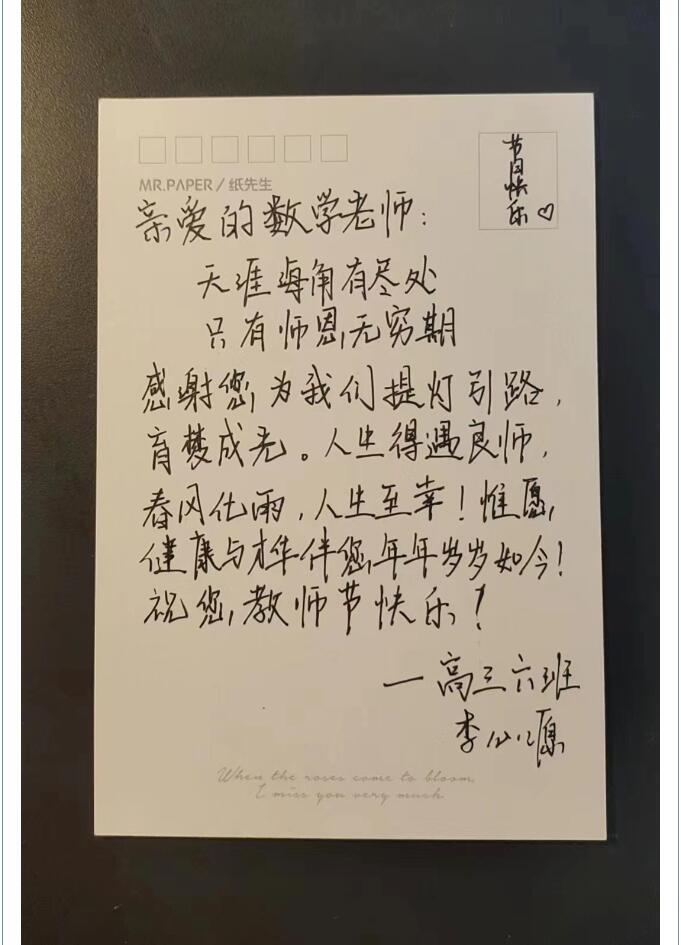 MR.PAPER / 纸先生
节日快乐♡
亲爱的数学老师：
天涯海角有尽处
只有师恩无穷期
感谢您为我们提灯引路，
育梦成光。人生得遇良师，
春风化雨，人生至幸！惟愿
健康与才华伴您年年岁岁如今！
祝您教师节快乐！
一高三六班
李心源
When the roses come to bloom,
I miss you very much